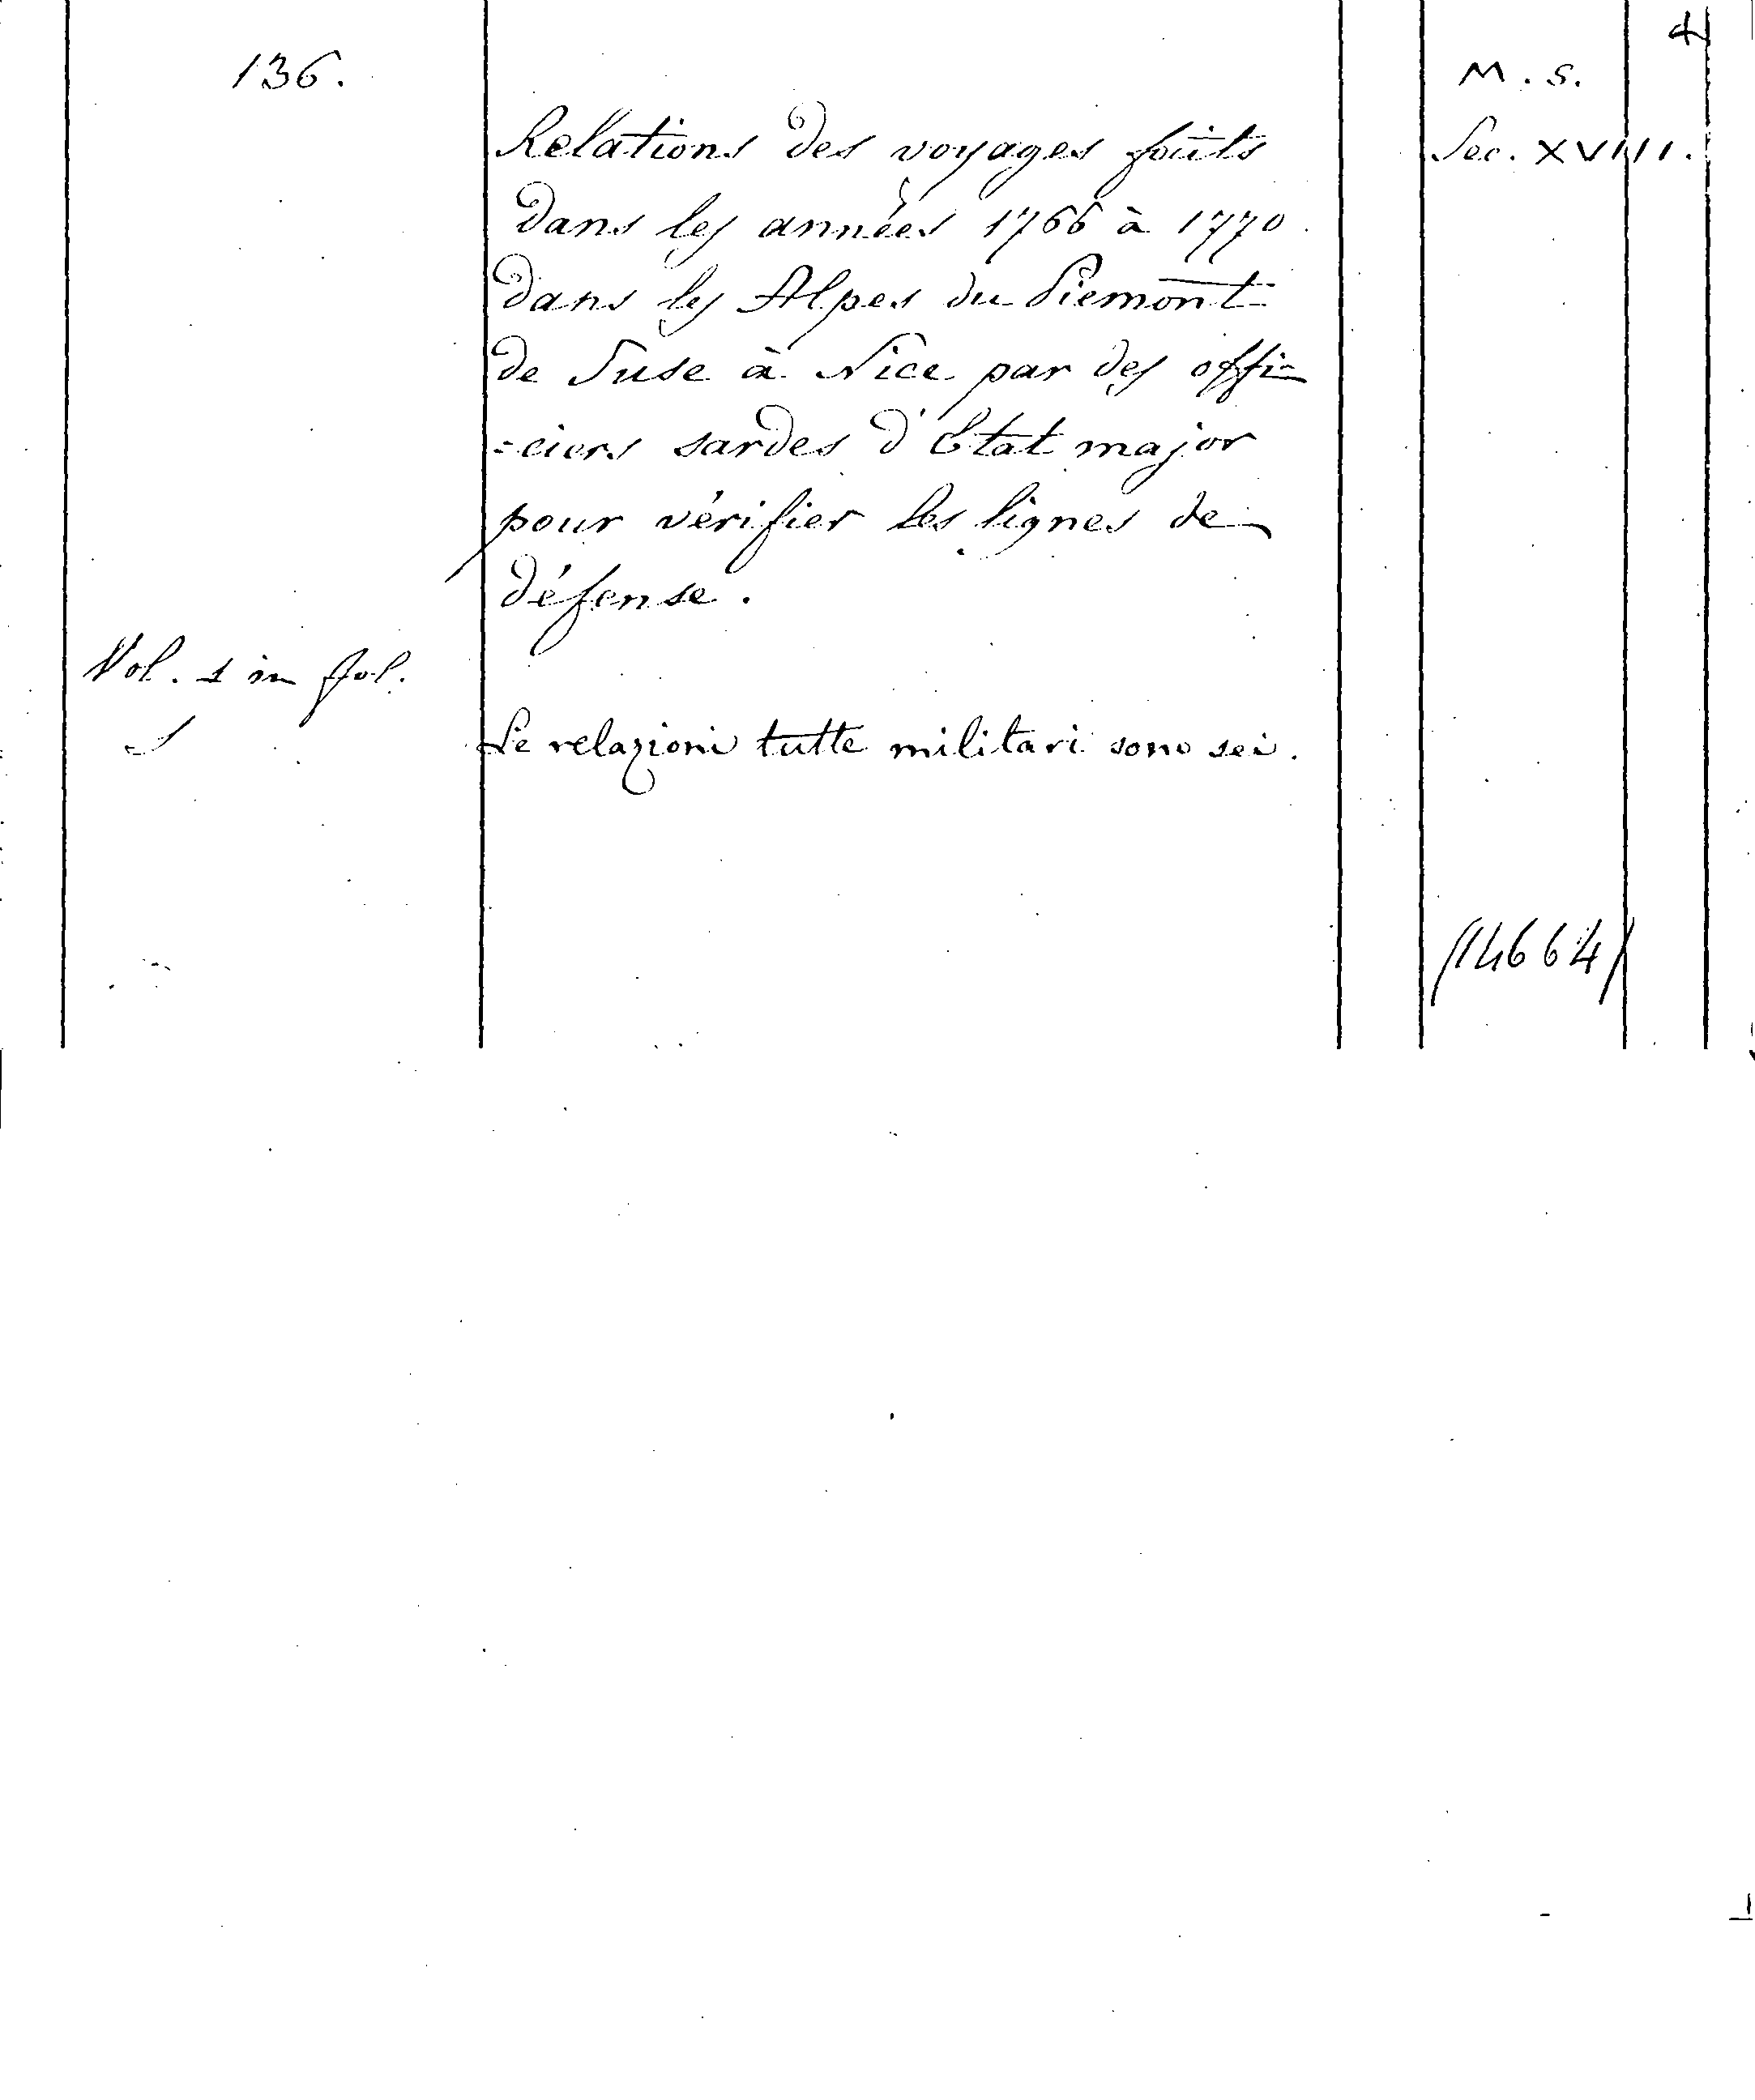 4
136.
M. S.
Relations des voyages faits
Sec. XVIII.
dans les années 1766 à 1770
dans les Alpes du Piemont
de Suse à Nice par des offi-
=ciers sardes d'Etat major
pour vérifier les lignes de
défense.
Vol. 1 in fol.
Le relazioni tutte militari sono sei.
(14664)